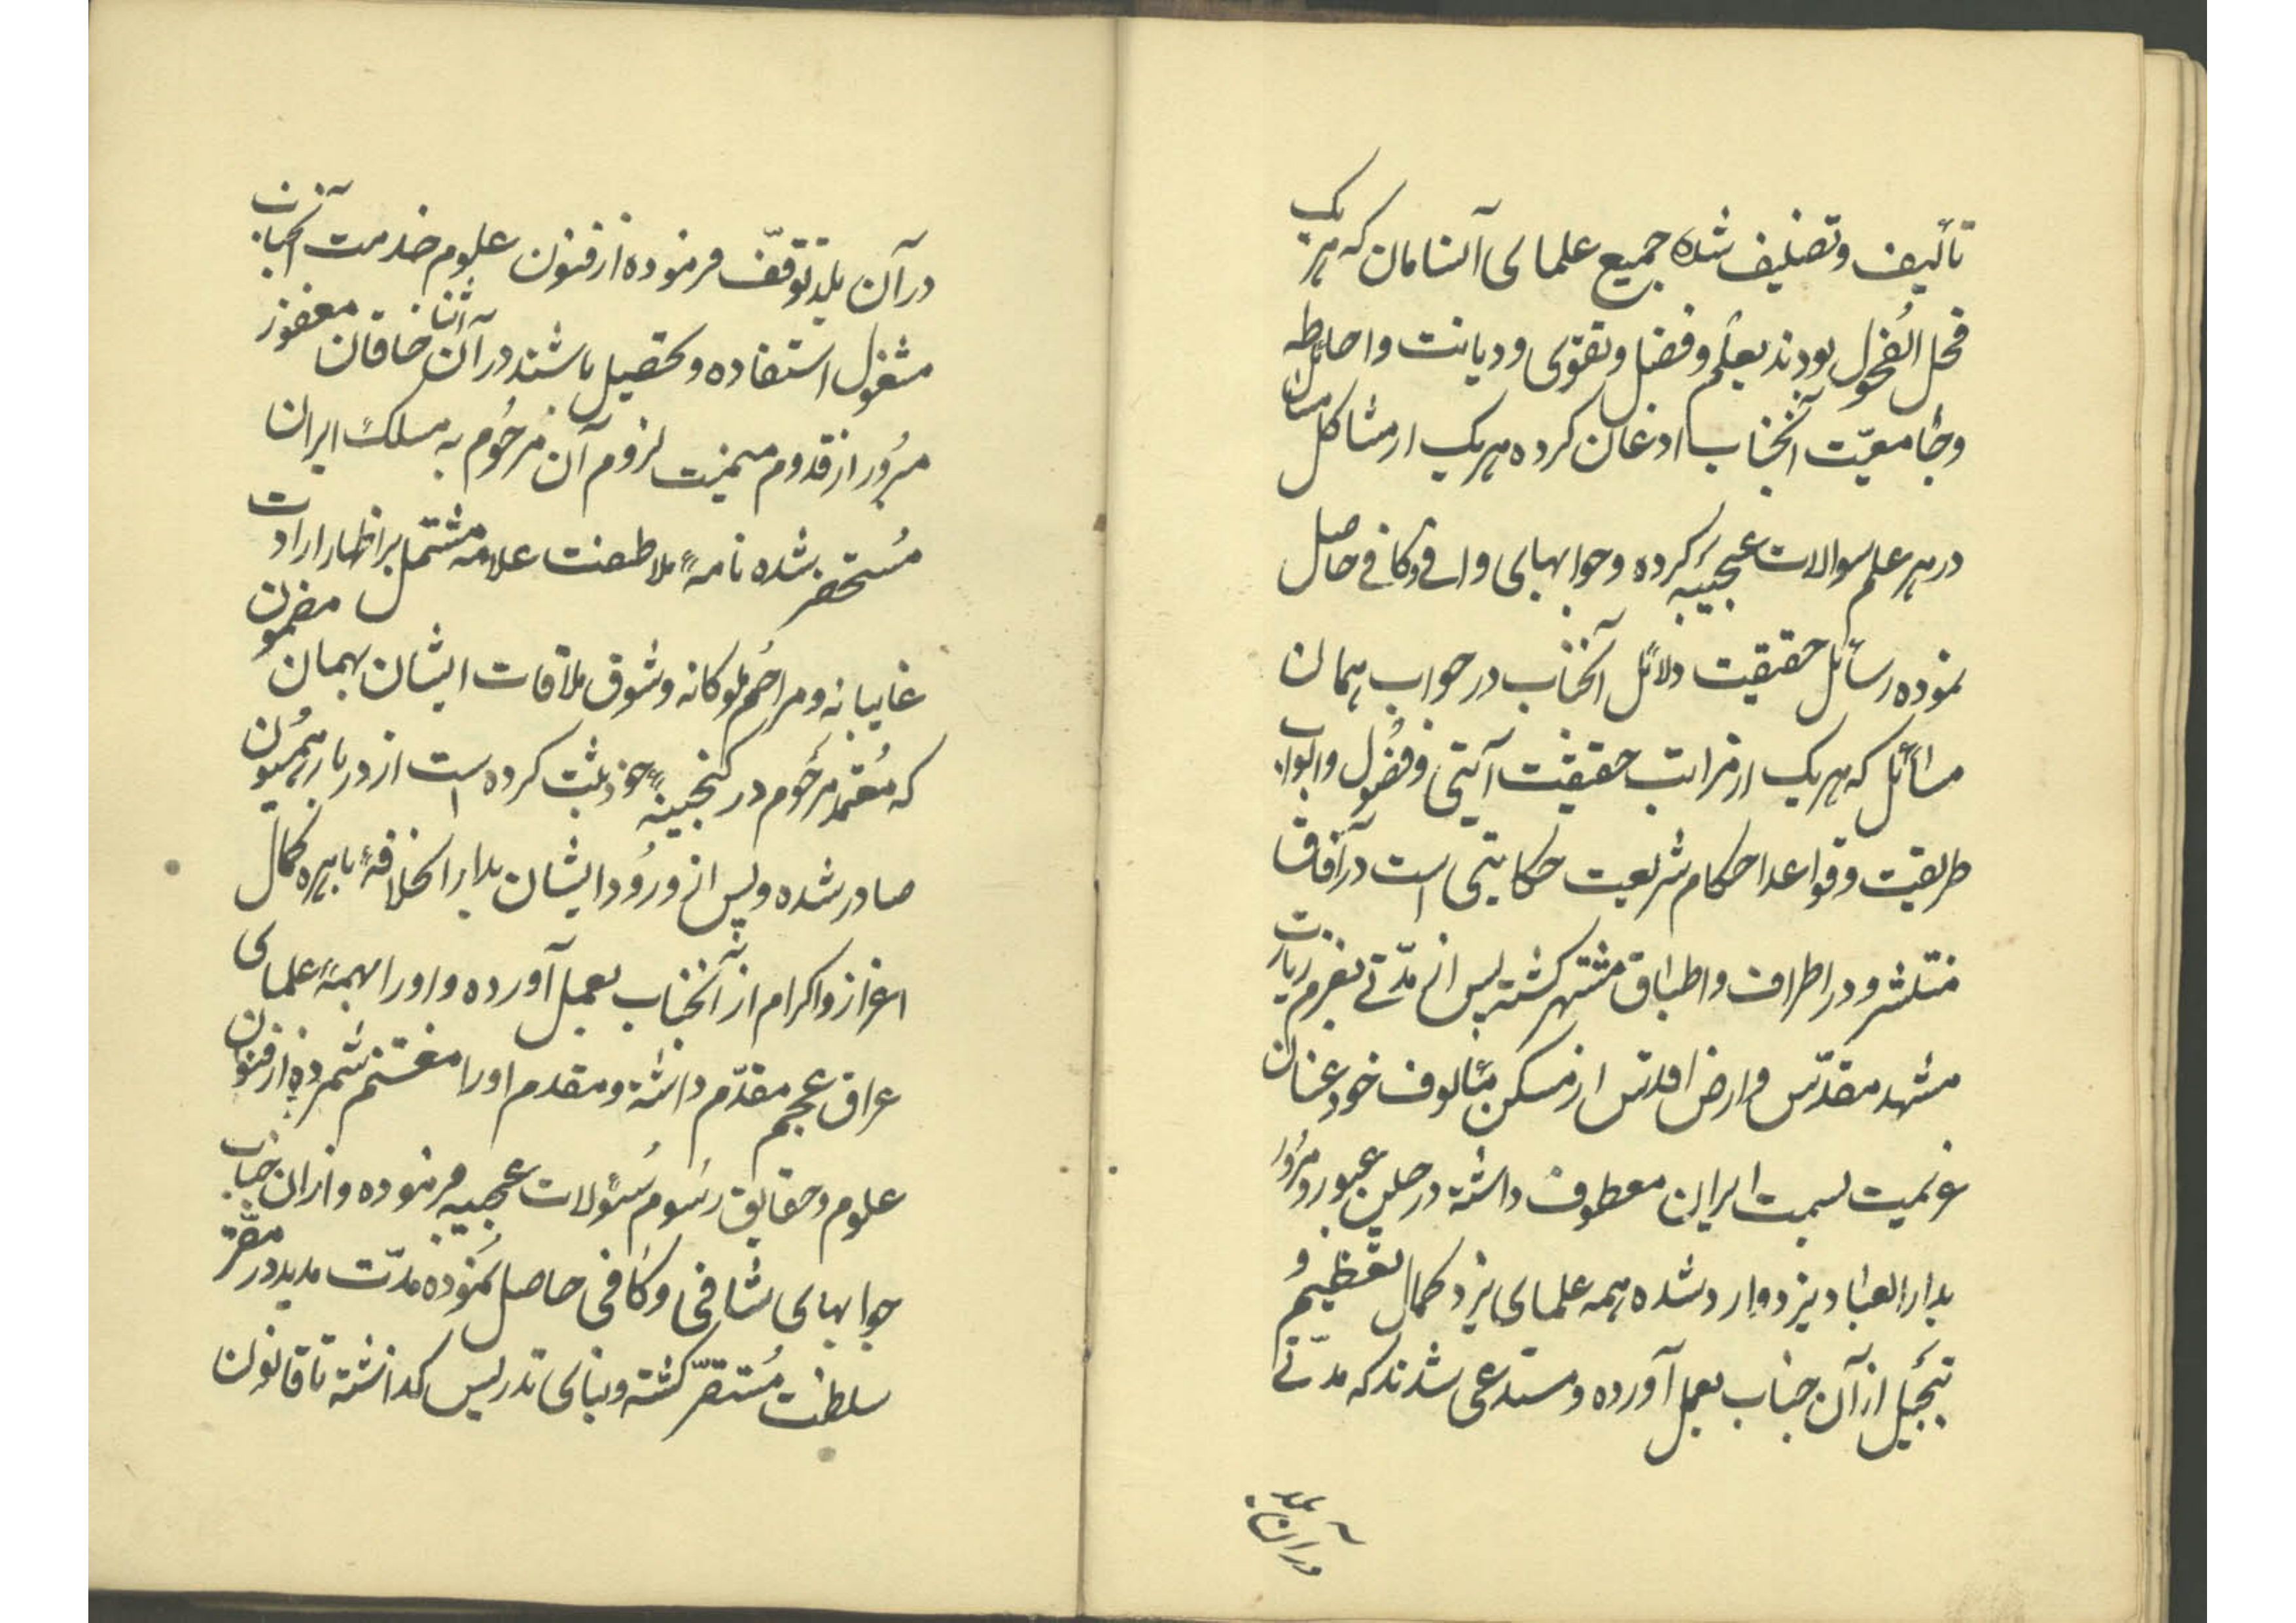 تألیف و تصنیف شده جمیع علمای آنسامان که هر یک
فحل الفحول بودند بعلم و فضل و تقوی و دیانت و احاطه
و جامعیّت آنجناب اذعان کرده هر یک از مشاکل مسائل
در هر علم سوالات عجیبه کرده و جوابهای وافی و کافی حاصل
نموده رسائل حقیقت دلائل آنجناب در جواب همان
مسائل که هر یک از مراتب حقیقت آیتی و فصول و ابواب
طریقت و قواعد احکام شریعت حکایتی است در آفاق
منتشر و در اطراف و اطباق مشتهر گشته پس از مدّتی بعزم زیارت
مشهد مقدّس و ارض اقدس از مسکن مألوف خود عنان
عزیمت بسمت ایران معطوف داشته در حین عبور و مرور
بدار العباد یزد وارد شده همه علمای یزد کمال تعظیم و
تبجیل از آن جناب بعمل آورده و مستدعی شدند که مدّتی
در آن بلد
در آن بلد توقّف فرموده از فنون علوم خدمت آنجناب
مشغول استفاده و تحصیل باشند در آن اثنا خاقان مغفور
مبرور از قدوم میمنت لزوم آن مرحوم به مملکت ایران
مستحضر شده نامهٔ ملاطفت علامه مشتمل بر اظهار ارادت
غایبانه و مراحم ملوکانه و شوق ملاقات ایشان بهمان مضمون
که معتمد مرحوم در گنجینهٔ خود ثبت کرده است از دربار همیون
صادر شده و پس از ورود ایشان بدار الخلافهٔ باهره کمال
اعزاز و اکرام از آنجناب بعمل آورده و او را بهمهٔ علمای
عراق عجم مقدّم داشته و مقدم او را مغتنم شمرده از فنون
علوم و حقایق رسوم سئولات عجیبه فرموده و از ان جناب
جوابهای شافی و کافی حاصل نموده مدّت مدید در مقرّ
سلطنت مستقرّ گشته و بنای تدریس گذاشته تا قانون